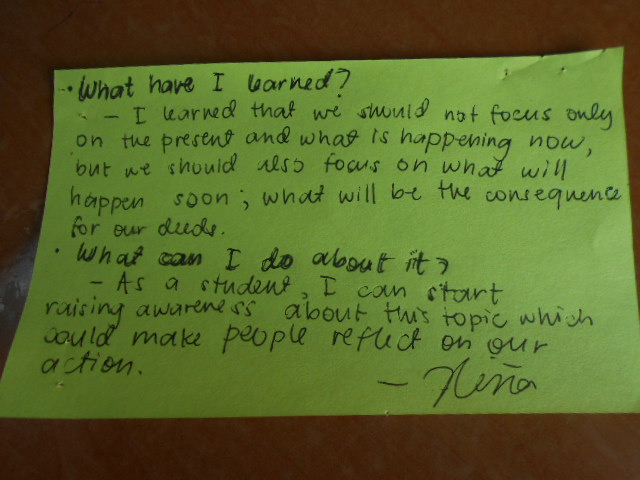 • What have I learned?
– I learned that we should not focus only
on the present and what is happening now,
but we should also focus on what will
happen soon; what will be the consequence
for our deeds.
• What can I do about it?
– As a student, I can start
raising awareness about this topic which
could make people reflect on our
action.
– Niña